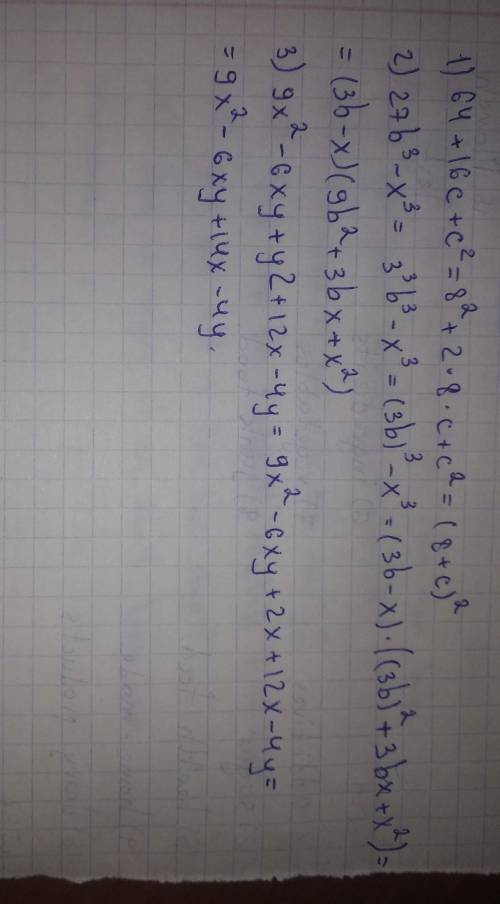 1) 64 + 16c + c² = 8² + 2 · 8 · c + c² = (8 + c)²
2) 27b³ - x³ = 3³b³ - x³ = (3b)³ - x³ = (3b - x) · ((3b)² + 3bx + x²) =
= (3b - x)(9b² + 3bx + x²)
3) 9x² - 6xy + y² + 12x - 4y = 9x² - 6xy + 2x + 12x - 4y =
= 9x² - 6xy + 14x - 4y.